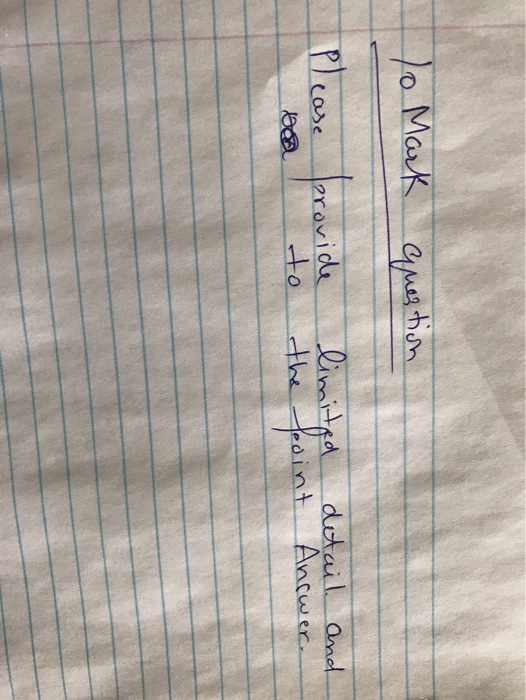 10 Mark question
Please provide limited detail and
to the point Answer.